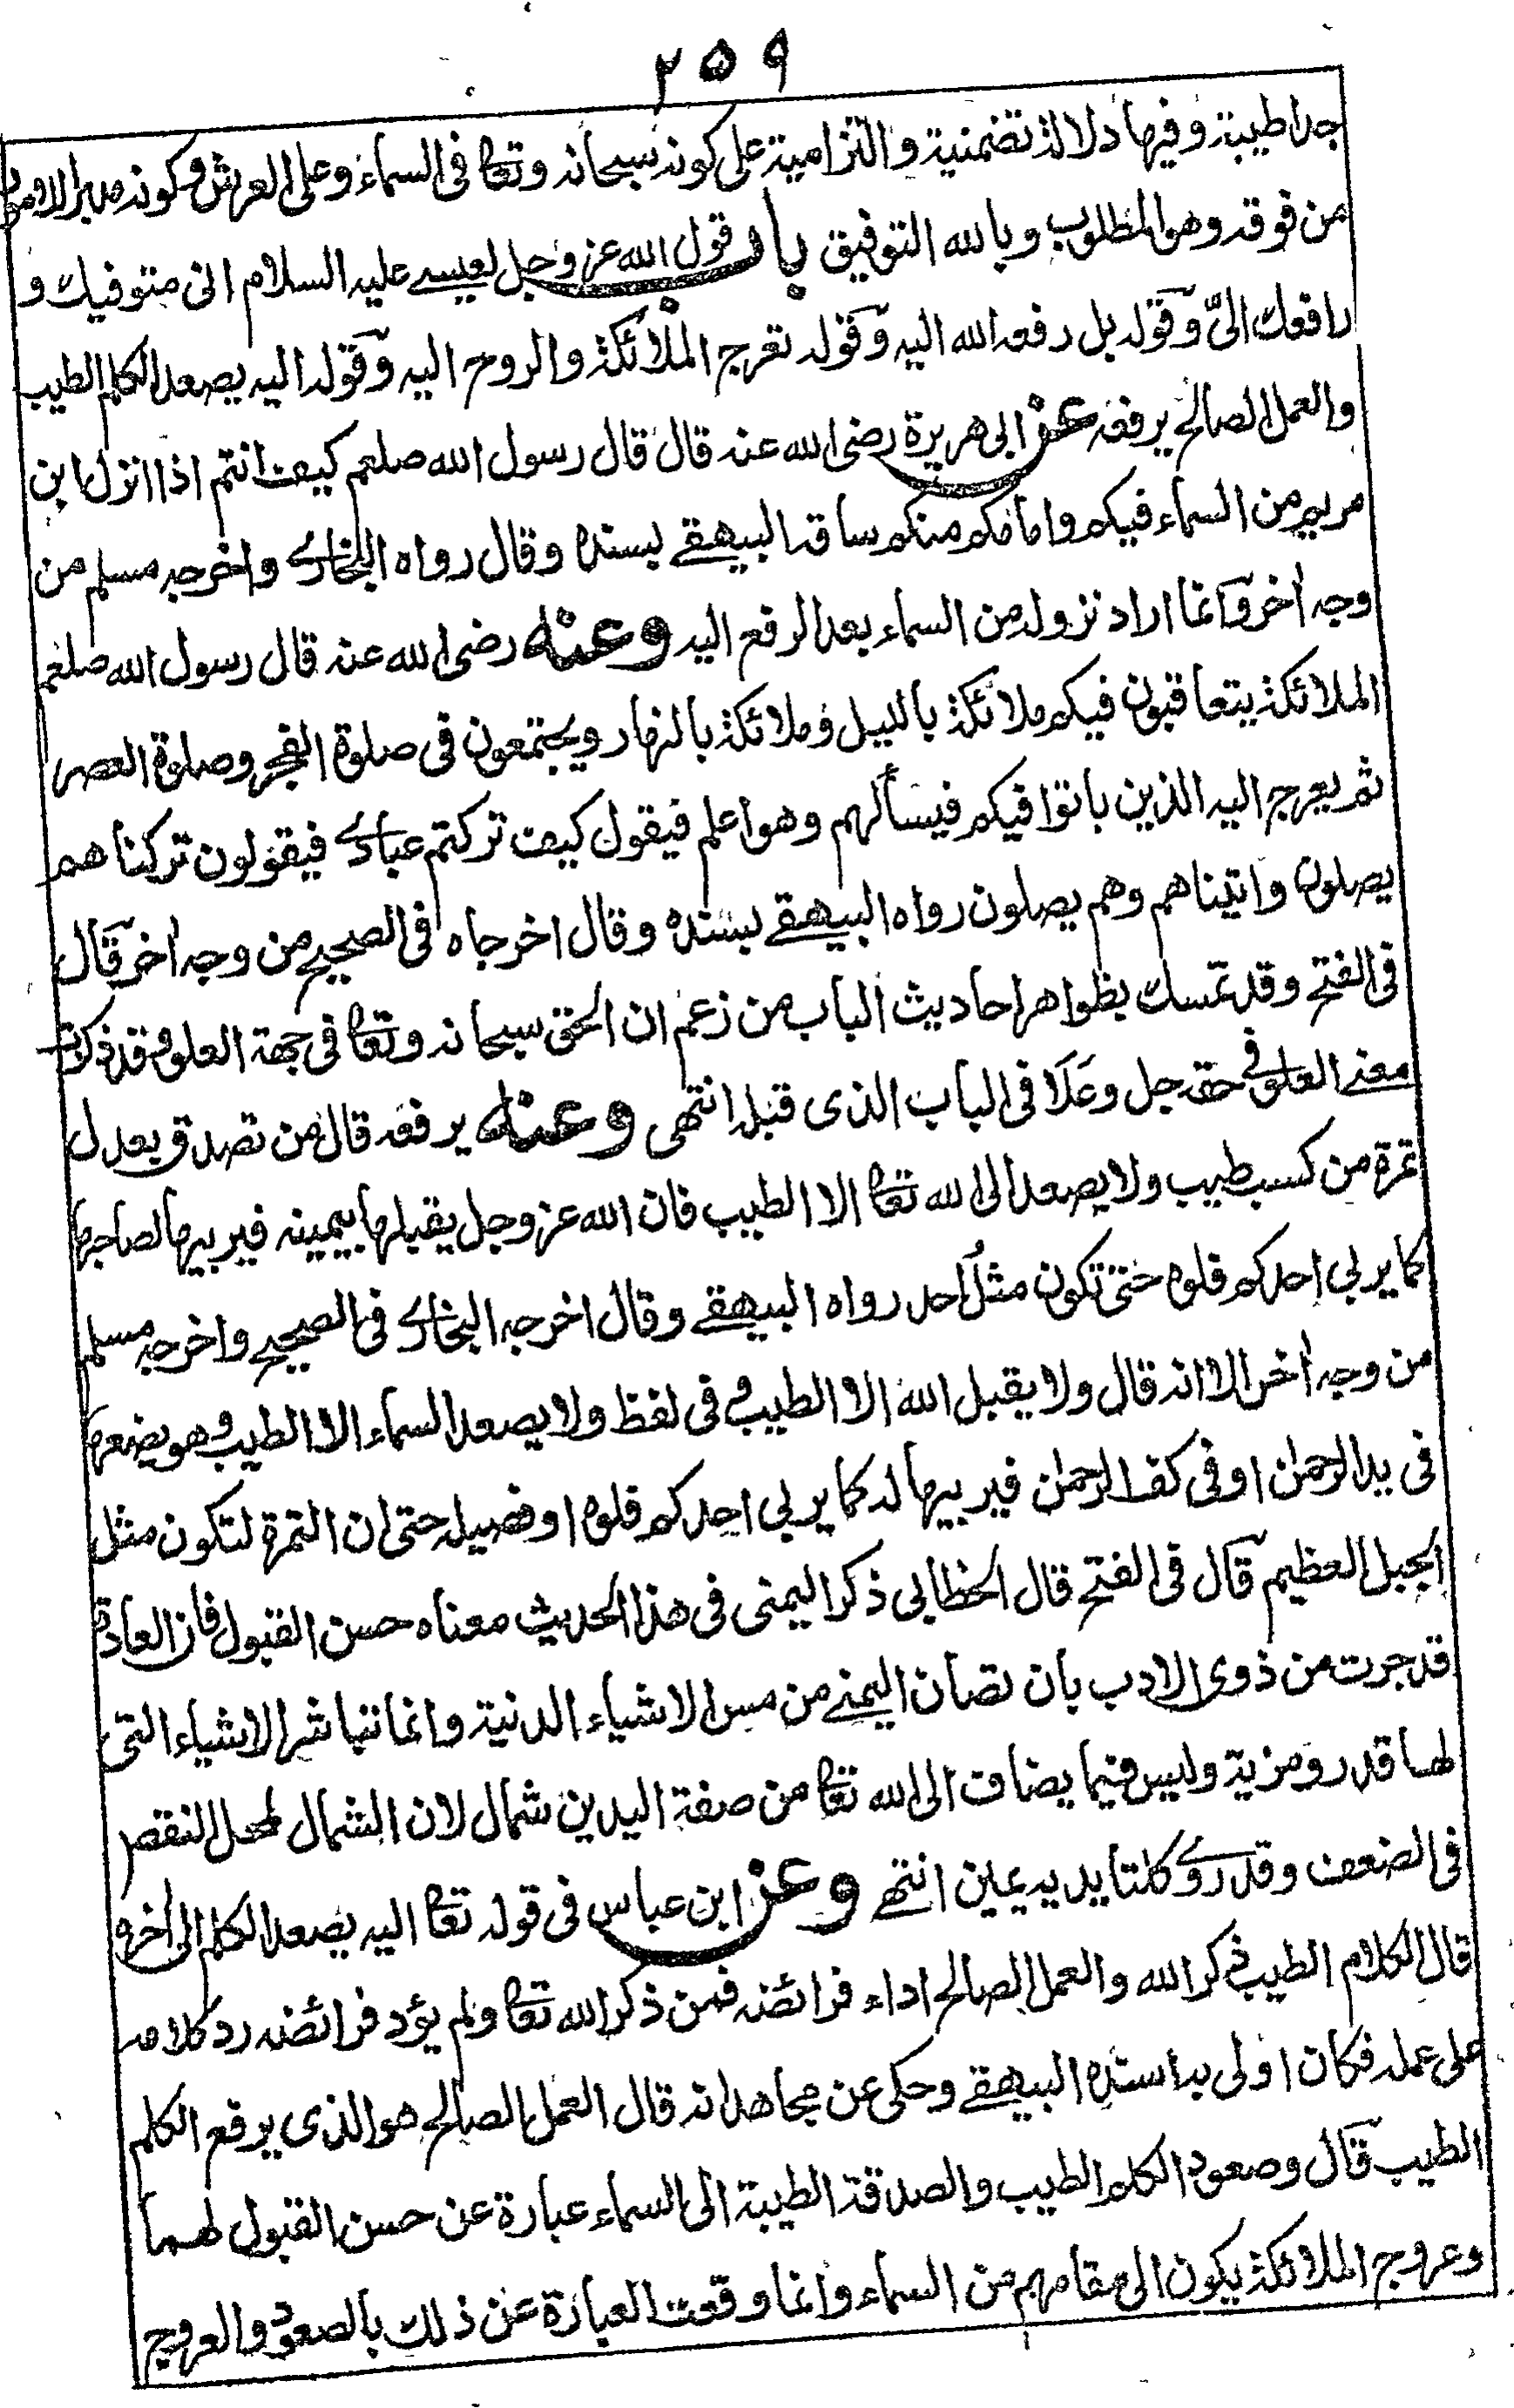 ٢٥٩
جدا طيبة وفيها دلالة تضمنية والتزامية على كونه سبحانه وتعا فى السماء وعلى العرش وكونه مدبر الامور
من فوقه وهو المطلوب وبالله التوفيق باب قول الله عز وجل لعيسے عليه السلام انى متوفيك و
رافعك الىّ وقوله بل رفعه الله اليه وقوله تعرج الملائكة والروح اليه وقوله اليه يصعد الكلم الطيب
والعمل الصالح يرفعه عن ابى هريرة رضى الله عنه قال قال رسول الله صلعم كيف انتم اذا انزل ابن
مريم من السماء فيكم وامامكم منكم ساقه البيهقے بسنده وقال رواه البخارے واخرجه مسلم من
وجه اٰخر وانما اراد نزوله من السماء بعد الرفع اليه وعنه رضى الله عنه قال رسول الله صلعم
الملائكة يتعاقبون فيكم ملائكة بالليل وملائكة بالنهار ويجتمعون فى صلوة الفجر وصلوة العصر
ثم يعرج اليه الذين باتوا فيكم فيسألهم وهو اعلم فيقول كيف تركتم عبادے فيقولون تركناهم
يصلون واتيناهم وهم يصلون رواه البيهقے بسنده وقال اخرجاه فى الصحيح من وجه اٰخر قال
فى الفتح وقد تمسك بظواهر احاديث الباب من زعم ان الحق سبحانه وتعا فى جهة العلو وقد ذكرت
معنے العلو فے حقه جل وعلا فى الباب الذى قبله انتهى وعنه يرفعه قال من تصدق بعدل
تمرة من كسب طيب ولا يصعد الى الله تعا الا الطيب فان الله عز وجل يقبلها بيمينه فيربيها لصاحبها
كما يربى احدكم فلوه حتى تكون مثل احد رواه البيهقے وقال اخرجه البخارے فى الصحيح واخرجه مسلم
من وجه اٰخر الا انه قال ولا يقبل الله الا الطيب وفى لفظ ولا يصعد السماء الا الطيب وهو يضعها
فى يد الرحمن او فى كف الرحمن فيربيها له كما يربى احدكم فلوه او فصيله حتى ان التمرة لتكون مثل
الجبل العظيم قال فى الفتح قال الخطابى ذكر اليمنى فى هذا الحديث معناه حسن القبول فان العادة
قد جرت من ذوى الادب بان تصان اليمنے من مس الاشياء الدنية وانما تباشر الاشياء التى
لها قدر ومزية وليس فيما يضاف الى الله تعا من صفة اليدين شمال لان الشمال لمحل النقص
فى الضعف وقد روے كلتا يديه يمين انتهے وعن ابن عباس فى قوله تعا اليه يصعد الكلم الى اٰخره
قال الكلام الطيب ذكر الله والعمل الصالح اداء فرائضه فمن ذكر الله تعا ولم يؤد فرائضه رد كلامه
على عمله فكان اولى به اسنده البيهقے وحكى عن مجاهد انه قال العمل الصالح هو الذى يرفع الكلم
الطيب قال وصعود الكلم الطيب والصدقة الطيبة الى السماء عبارة عن حسن القبول لهما
وعروج الملائكة يكون الى مقامهم من السماء وانما وقعت العبارة عن ذلك بالصعود والعروج